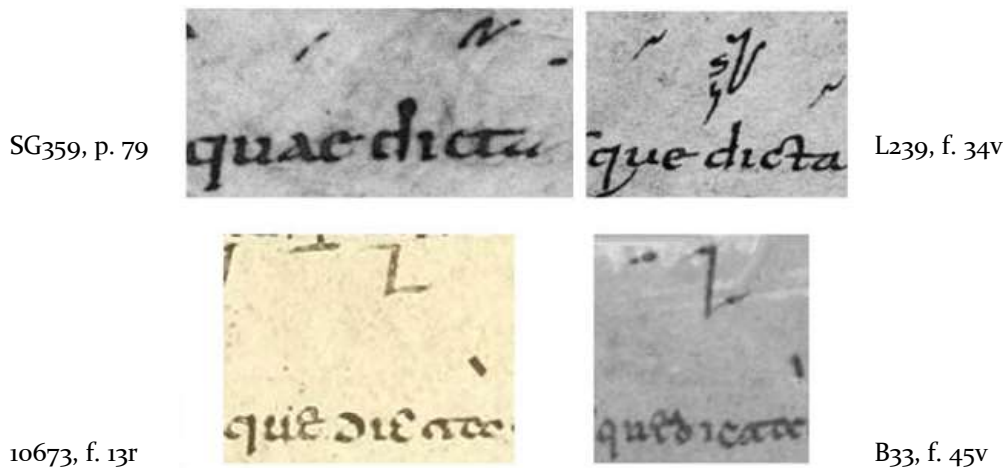 SG359, p. 79
quae dicta
que dicta
L239, f. 34v
10673, f. 13r
que dicta
que dicta
B33, f. 45v